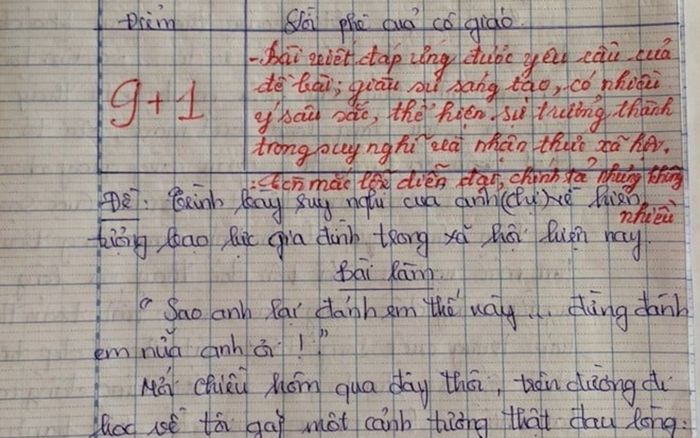 Điểm Lời phê của cô giáo
9+1
- Bài viết đáp ứng được yêu cầu của
đề bài; giàu sự sáng tạo, có nhiều
ý sâu sắc, thể hiện sự trưởng thành
trong suy nghĩ và nhận thức xã hội.
- Còn mắc lỗi diễn đạt, chính tả nhưng không
nhiều
Đề: Trình bay suy nghĩ của anh (chị) về hiện
tượng bạo lực gia đình trong xã hội hiện nay.
Bài làm
"Sao anh lại đánh em thế này... đừng đánh
em nữa anh ơi!"
Mới chiều hôm qua đây thôi, trên đường đi
học về tôi gặp một cảnh tượng thật đau lòng: